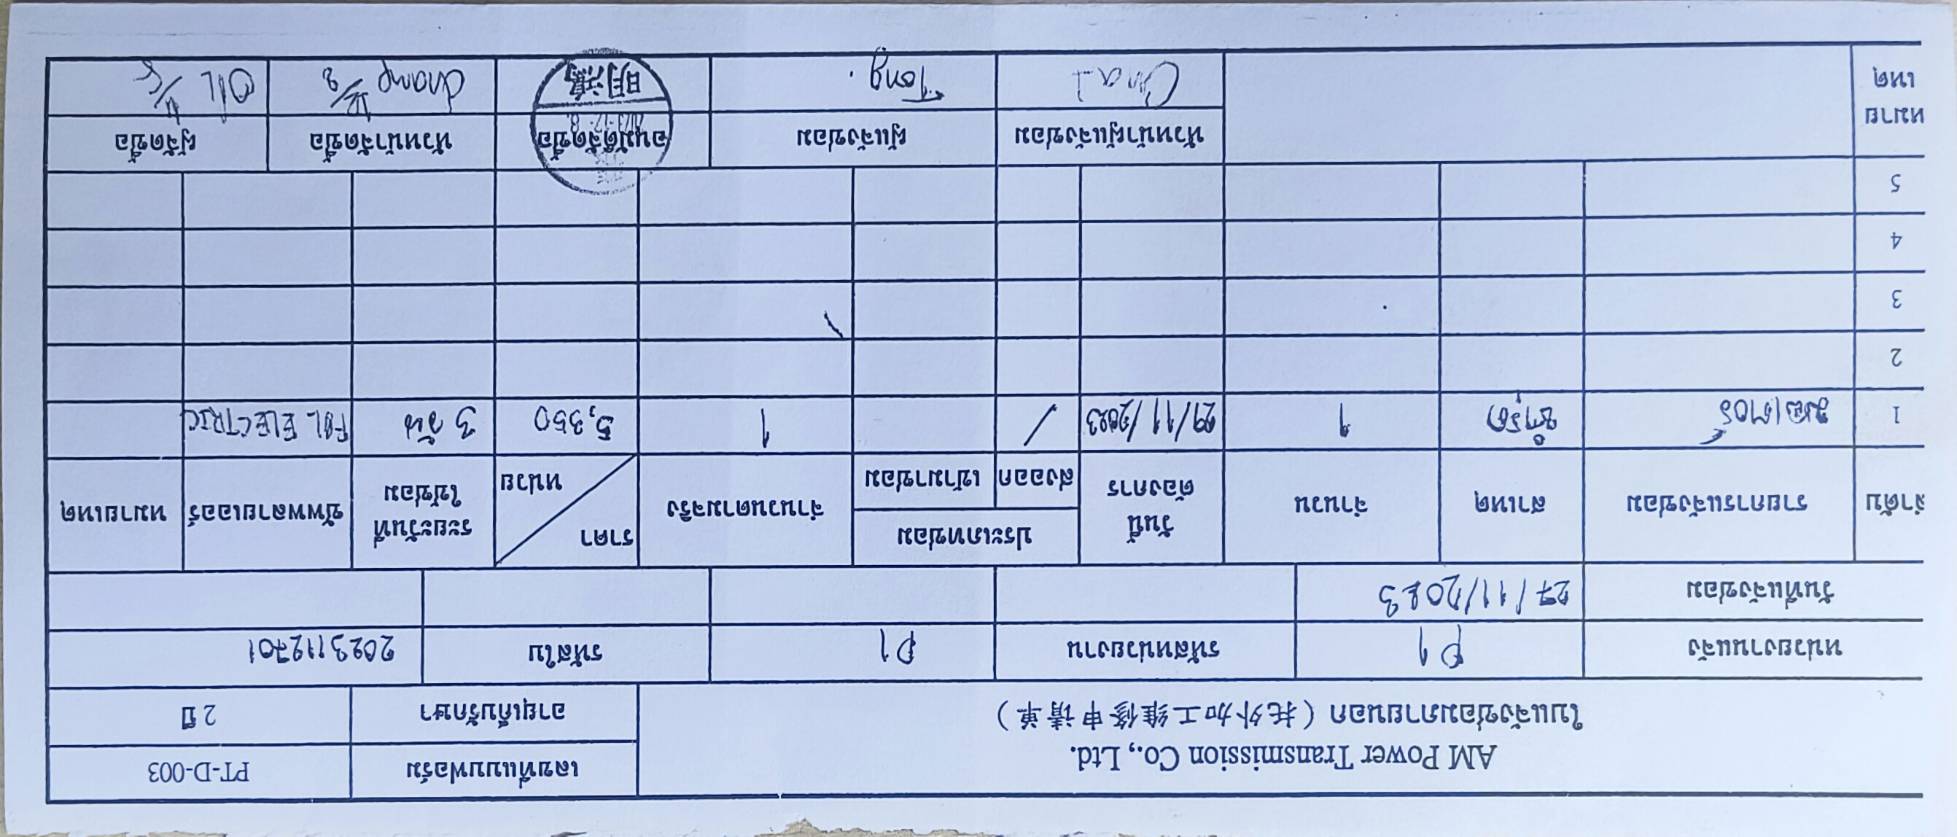 AM Power Transmission Co., Ltd.
ใบแจ้งซ่อมภายนอก (托外加工维修申请单)
เลขที่แบบฟอร์ม PT-D-003
อายุเก็บรักษา 2 ปี
หน่วยงานแจ้ง P1 รหัสหน่วยงาน P1 รหัสใบ 2023112701
วันที่แจ้งซ่อม 27/11/2023
ลำดับ รายการแจ้งซ่อม สาเหตุ จำนวน วันนี้ต้องการ ประเภทซ่อม ส่งออก เข้ามาซ่อม จำนวนตามจริง ราคา หน่วย ระยะวันที่ใช้ซ่อม ซัพพลายเออร์ หมายเหตุ
1 มอเตอร์ ชำรุด 1 29/11/2023 / 1 5,350 3 วัน ELECTRIC
2
3
4
5
หมายเหตุ หัวหน้าผู้แจ้งซ่อม ผู้แจ้งซ่อม อนุมัติจัดซื้อ หัวหน้าจัดซื้อ ผู้จัดซื้อ
Tong. 明鴻 champ